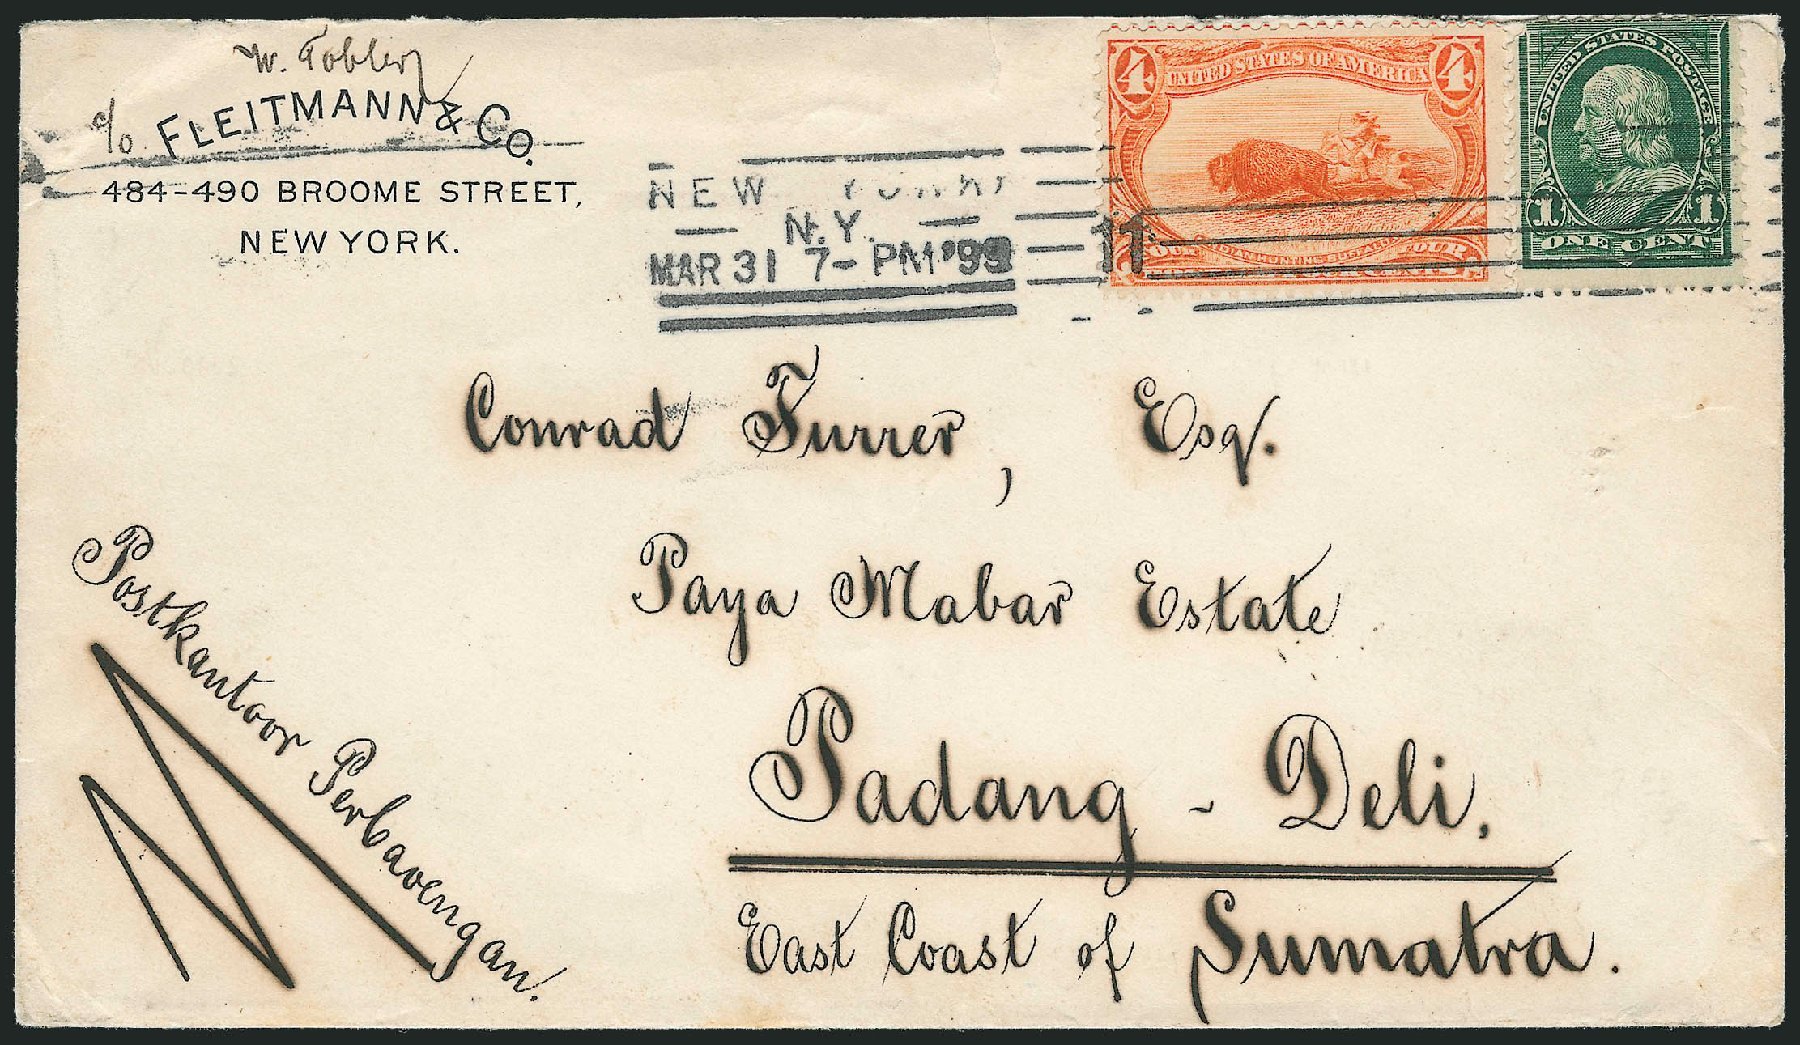 W. Tobler
c/o FLEITMANN & CO.
484-490 BROOME STREET,
NEW YORK.
NEW YORK,
N.Y.
MAR 31 7-PM '99
11
4 UNITED STATES OF AMERICA 4
FOUR CENTS
UNITED STATES POSTAGE
1 1
ONE CENT
Conrad Furrer, Esq.
Paya Mabar Estate
Padang - Deli.
East Coast of Sumatra.
Postkantoor Perbavengan.